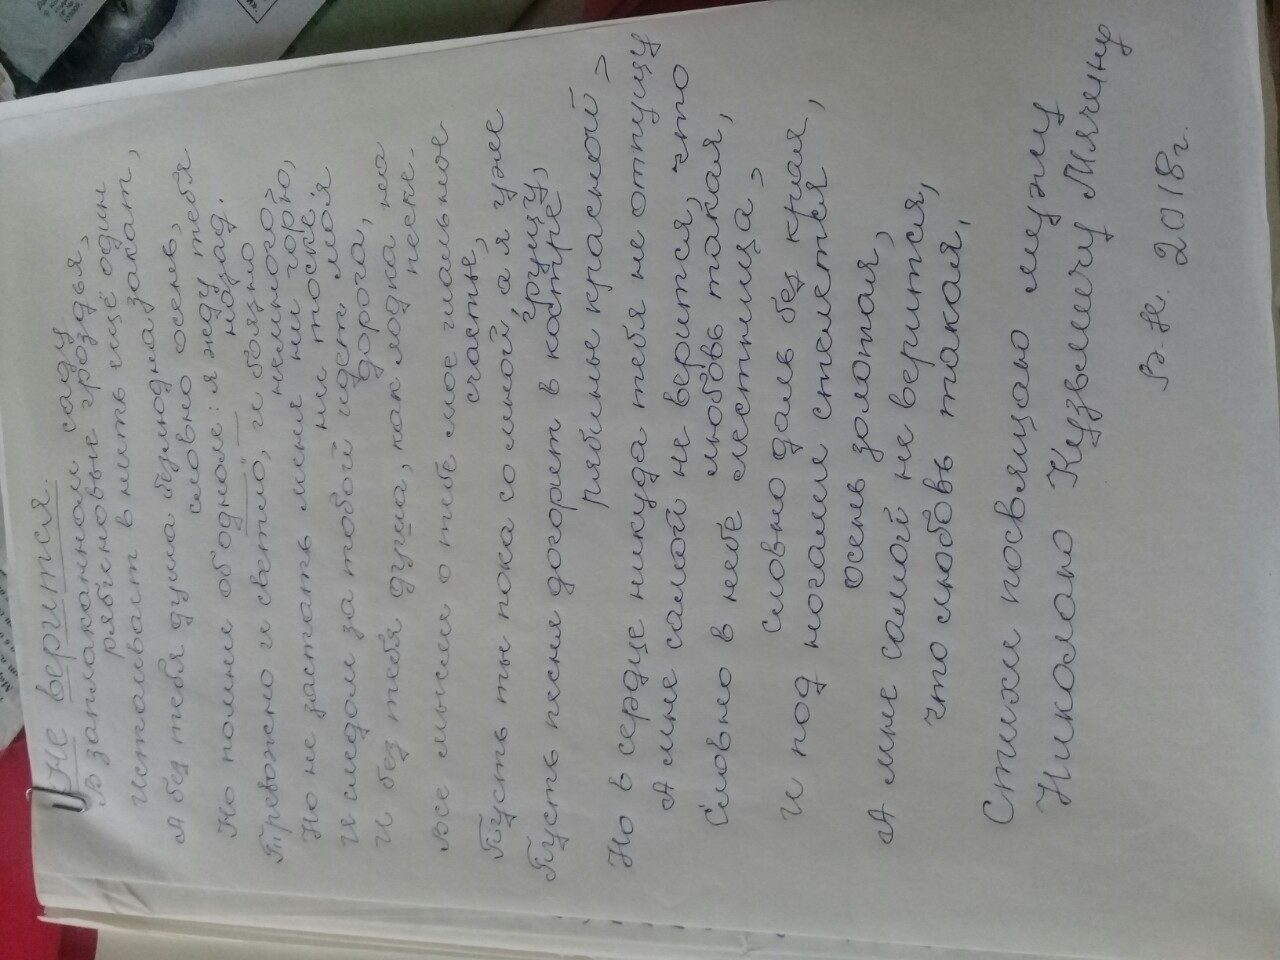 Не верится.
В заплаканном саду
рябиновые гроздья,
Истаивает в нить ещё один
закат,
А без тебя душа безлюдна,
словно осень,
Но помни об одном: я жду тебя
назад.
Тревожно и светло, и боязно
немного,
Но не застать меня ни горю,
ни тоске.
И следом за тобой идёт моя
дорога,
И без тебя душа, как лодка на
песке.
Все мысли о тебе мое шальное
счастье,
Пусть ты пока со мной, а я уже
грущу,
Пусть песня догорит в костре
рябины красной -
Но в сердце никуда тебя не отпущу
А мне самой не верится, что
любовь такая,
Словно в небе лестница -
словно даль без края,
И под ногами стелется
осень золотая,
А мне самой не верится,
что любовь такая.
Стихи посвящаю мужу
Николаю Кузьмичу Мячину
В.Н. 2018г.